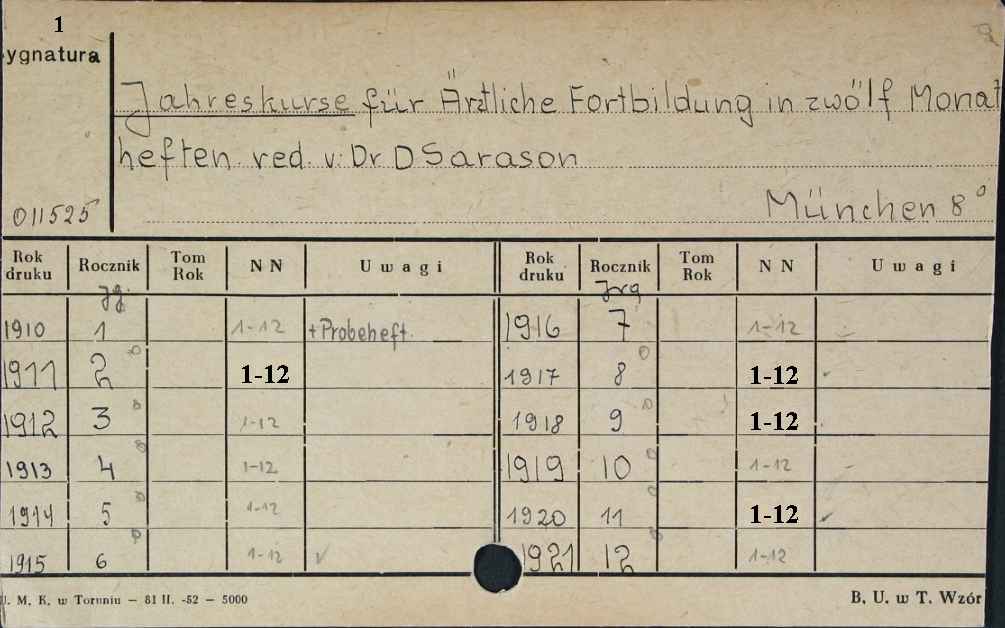 1
ygnatura
Jahreskurse für Ärztliche Fortbildung in zwölf Monat
heften red. v. Dr D Sarason
011525
München 8°
Rok druku Rocznik Tom Rok N N Uwagi Rok druku Rocznik Tom Rok N N Uwagi
Jg. Jrg
1910 1 1-12 +Probeheft. 1916 7 1-12
1911 2 1-12 1917 8 1-12
1912 3 1-12 1918 9 1-12
1913 4 1-12 1919 10 1-12
1914 5 1-12 1920 11 1-12
1915 6 1-12 1921 12 1-12
U. M. K. w Toruniu — 81 II. -52 — 5000 B. U. w T. Wzór